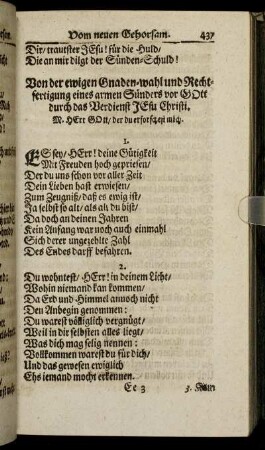 Vom neuen Gehorsam. 437
Dir/ trautster JEsu! für die Huld/
Die an mir dilgt der Sünden-Schuld!
Von der ewigen Gnaden-wahl und Recht-
fertigung eines armen Sünders vor GOtt
durch das Verdienst JEsu Christi.
M. HErr GOtt, der du erforschest mich.
1.
ES sey/ HErr! deine Gütigkeit
Mit Freuden hoch gepriesen/
Der du uns schon vor aller Zeit
Dein Lieben hast erwiesen/
Zum Zeugniß/ daß es ewig ist/
Ja selbst so alt/ als du bist/
Da doch an deinen Jahren
Kein Anfang war noch auch einmahl
Sich derer ungezehlte Zahl
Des Endes darff befahren.
2.
Du wohntest/ HErr! in deinem Licht/
Wohin niemand kan kommen/
Da Erd und Himmel annoch nicht
Den Anbegin genommen:
Du warest völliglich vergnügt/
Weil in dir selbsten alles liegt/
Was dich mag selig nennen:
Vollkommen warest du für dich/
Und das gewesen ewiglich
Ehs jemand mocht erkennen.
Ee 3 3.